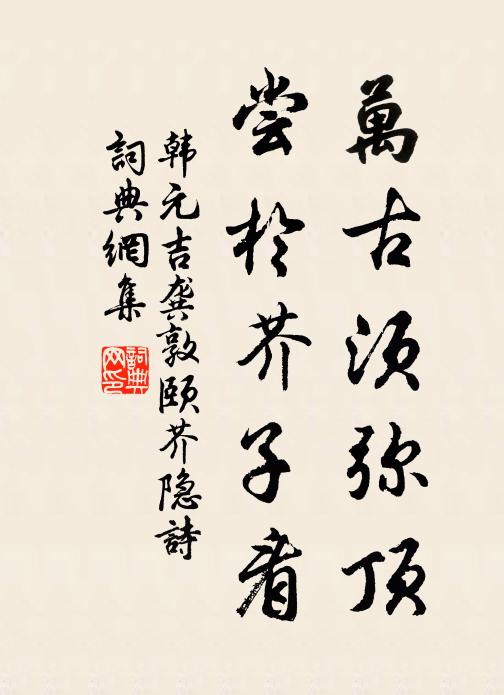 萬古须弥顶
尝於芥子看
韩元吉龚敦颐芥隐詩
詞典網集
詞典网印